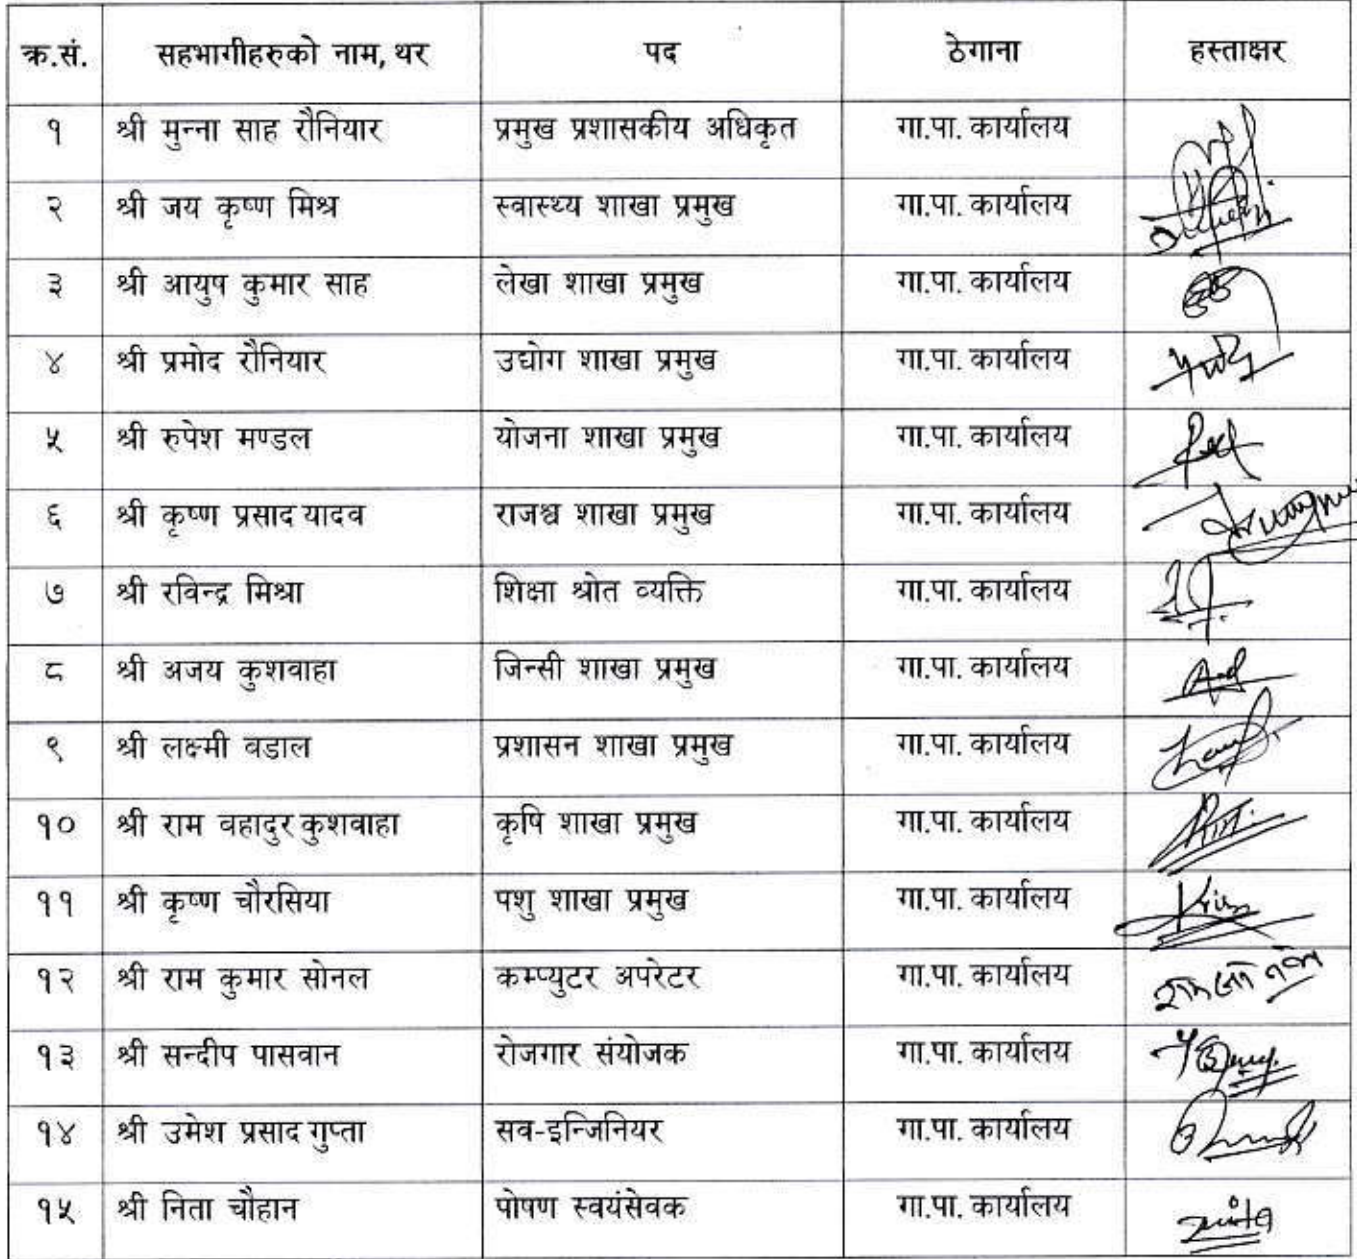 क्र.सं. सहभागीहरुको नाम, थर पद ठेगाना हस्ताक्षर
१ श्री मुन्ना साह रौनियार प्रमुख प्रशासकीय अधिकृत गा.पा. कार्यालय
२ श्री जय कृष्ण मिश्र स्वास्थ्य शाखा प्रमुख गा.पा. कार्यालय
३ श्री आयुष कुमार साह लेखा शाखा प्रमुख गा.पा. कार्यालय
४ श्री प्रमोद रौनियार उद्योग शाखा प्रमुख गा.पा. कार्यालय
५ श्री रुपेश मण्डल योजना शाखा प्रमुख गा.पा. कार्यालय
६ श्री कृष्ण प्रसाद यादव राजश्व शाखा प्रमुख गा.पा. कार्यालय
७ श्री रविन्द्र मिश्रा शिक्षा श्रोत व्यक्ति गा.पा. कार्यालय
८ श्री अजय कुशवाहा जिन्सी शाखा प्रमुख गा.पा. कार्यालय
९ श्री लक्ष्मी वडाल प्रशासन शाखा प्रमुख गा.पा. कार्यालय
१० श्री राम वहादुर कुशवाहा कृषि शाखा प्रमुख गा.पा. कार्यालय
११ श्री कृष्ण चौरसिया पशु शाखा प्रमुख गा.पा. कार्यालय
१२ श्री राम कुमार सोनल कम्प्युटर अपरेटर गा.पा. कार्यालय
१३ श्री सन्दीप पासवान रोजगार संयोजक गा.पा. कार्यालय
१४ श्री उमेश प्रसाद गुप्ता सव-इन्जिनियर गा.पा. कार्यालय
१५ श्री निता चौहान पोषण स्वयंसेवक गा.पा. कार्यालय